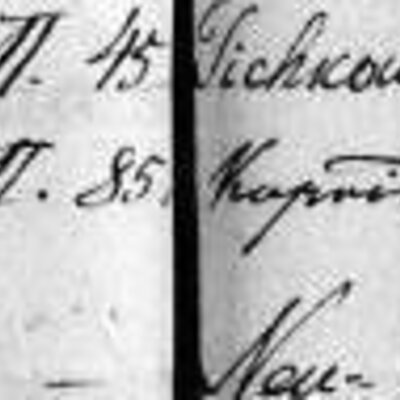 П. 45 Tichkow
П. 85 Kopri
— Neu-